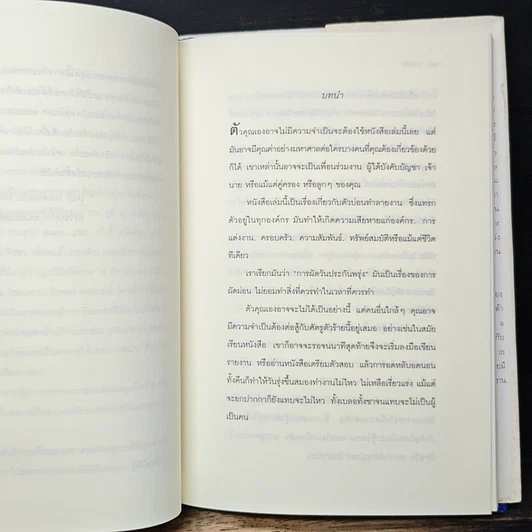 บทนำ
ตัวคุณเองอาจไม่มีความจำเป็นจะต้องใช้หนังสือเล่มนี้เลย แต่
มันอาจมีคุณค่าอย่างมหาศาลต่อใครบางคนที่คุณต้องเกี่ยวข้องด้วย
ก็ได้ เขาเหล่านั้นอาจจะเป็นเพื่อนร่วมงาน ผู้ใต้บังคับบัญชา เจ้า
นาย หรือแม้แต่คู่ครอง หรือลูกๆ ของคุณ
หนังสือเล่มนี้เป็นเรื่องเกี่ยวกับตัวบ่อนทำลายงาน ซึ่งแทรก
ตัวอยู่ในทุกองค์กร มันทำให้เกิดความเสียหายแก่องค์กร. การ
แต่งงาน. ครอบครัว. ความสัมพันธ์. ทรัพย์สมบัติหรือแม้แต่ชีวิต
ทีเดียว
เราเรียกมันว่า "การผัดวันประกันพรุ่ง" มันเป็นเรื่องของการ
ผัดผ่อน ไม่ยอมทำสิ่งที่ควรทำในเวลาที่ควรทำ
ตัวคุณเองอาจจะไม่ได้เป็นอย่างนี้ แต่คนอื่นใกล้ๆ คุณอาจ
มีความจำเป็นต้องต่อสู้กับศัตรูตัวร้ายนี้อยู่เสมอ อย่างเช่นในสมัย
เรียนหนังสือ เขาก็อาจจะรอจนนาทีสุดท้ายจึงจะเริ่มลงมือเขียน
รายงาน หรืออ่านหนังสือเตรียมตัวสอบ แล้วการอดหลับอดนอน
ทั้งคืนก็ทำให้วันรุ่งขึ้นสมองทำงานไม่ไหว ไม่เหลือเรี่ยวแรง แม้แต่
จะยกปากกาก็ยังแทบจะไม่ไหว ทั้งเบลอทั้งชาจนแทบจะไม่เป็นผู้
เป็นคน